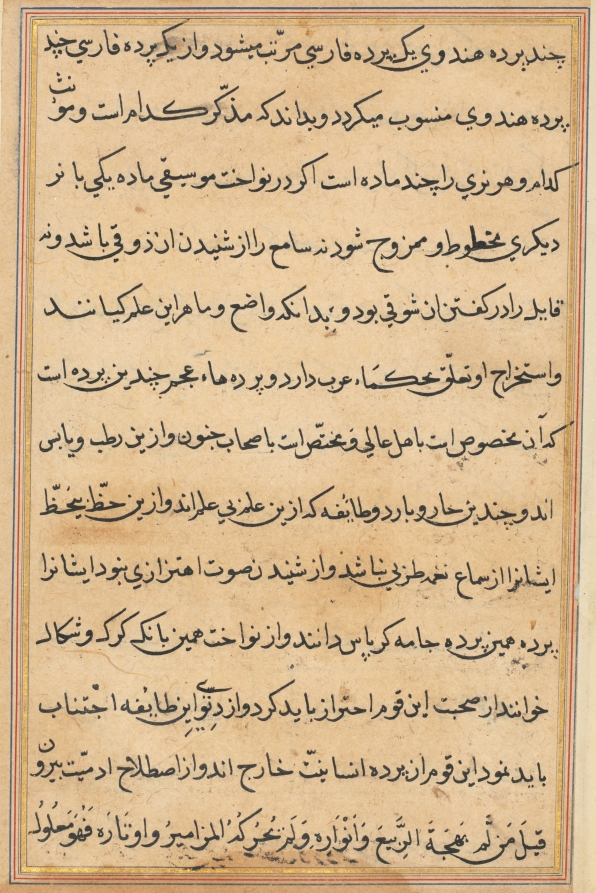 چند پرده هندوي يك پرده فارسي مرتّب ميشود و از يك پرده فارسي چند
پرده هندوي منسوب ميكردد و بداند كه مذكّر كدام است و مونث
كدام و هر نري را چند ماده است اكر در نواخت موسيقي ماده يكي با نر
ديكري مخطوط و ممزوج شود نه سامع را از شنيدن ان ذوقي باشد و نه
قايل را در كفتن ان شوقي بود و بدانكه واضع و ماهر اين علم كيانند
و استخراج او تعلّق بحكماء عرب دارد و پردهاء عجم چندين پرده است
كه آن مخصوص است باهل عالي و مختصّ است باصحاب جنون و ازين رطب و يابس
اند و چندين حار و بارد و طائفه كه ازين علم بي علم اند و ازين حظّ بيحظّ
ايشانرا از سماع نغمه طربي نباشد و از شنيدن صوت اهتزازي نبود ايشانرا
پرده همين پرده جامه كرباس دانند و از نواخت همين بانك كرك و شكال
خوانند از صحبت اين قوم احتراز بايد كرد و از اين طائفه اجتناب
بايد نمود اين قوم از پرده انسانيتّ خارج اند و از اصطلاح ادميّت بيرون
قيلَ مَن لَم بَهجَة الرَّبيعَ وَاَنْوَارِه وَلَم تحركهُ المزاميرُ و اوتارَه فَهُوَ مَعلُولُ